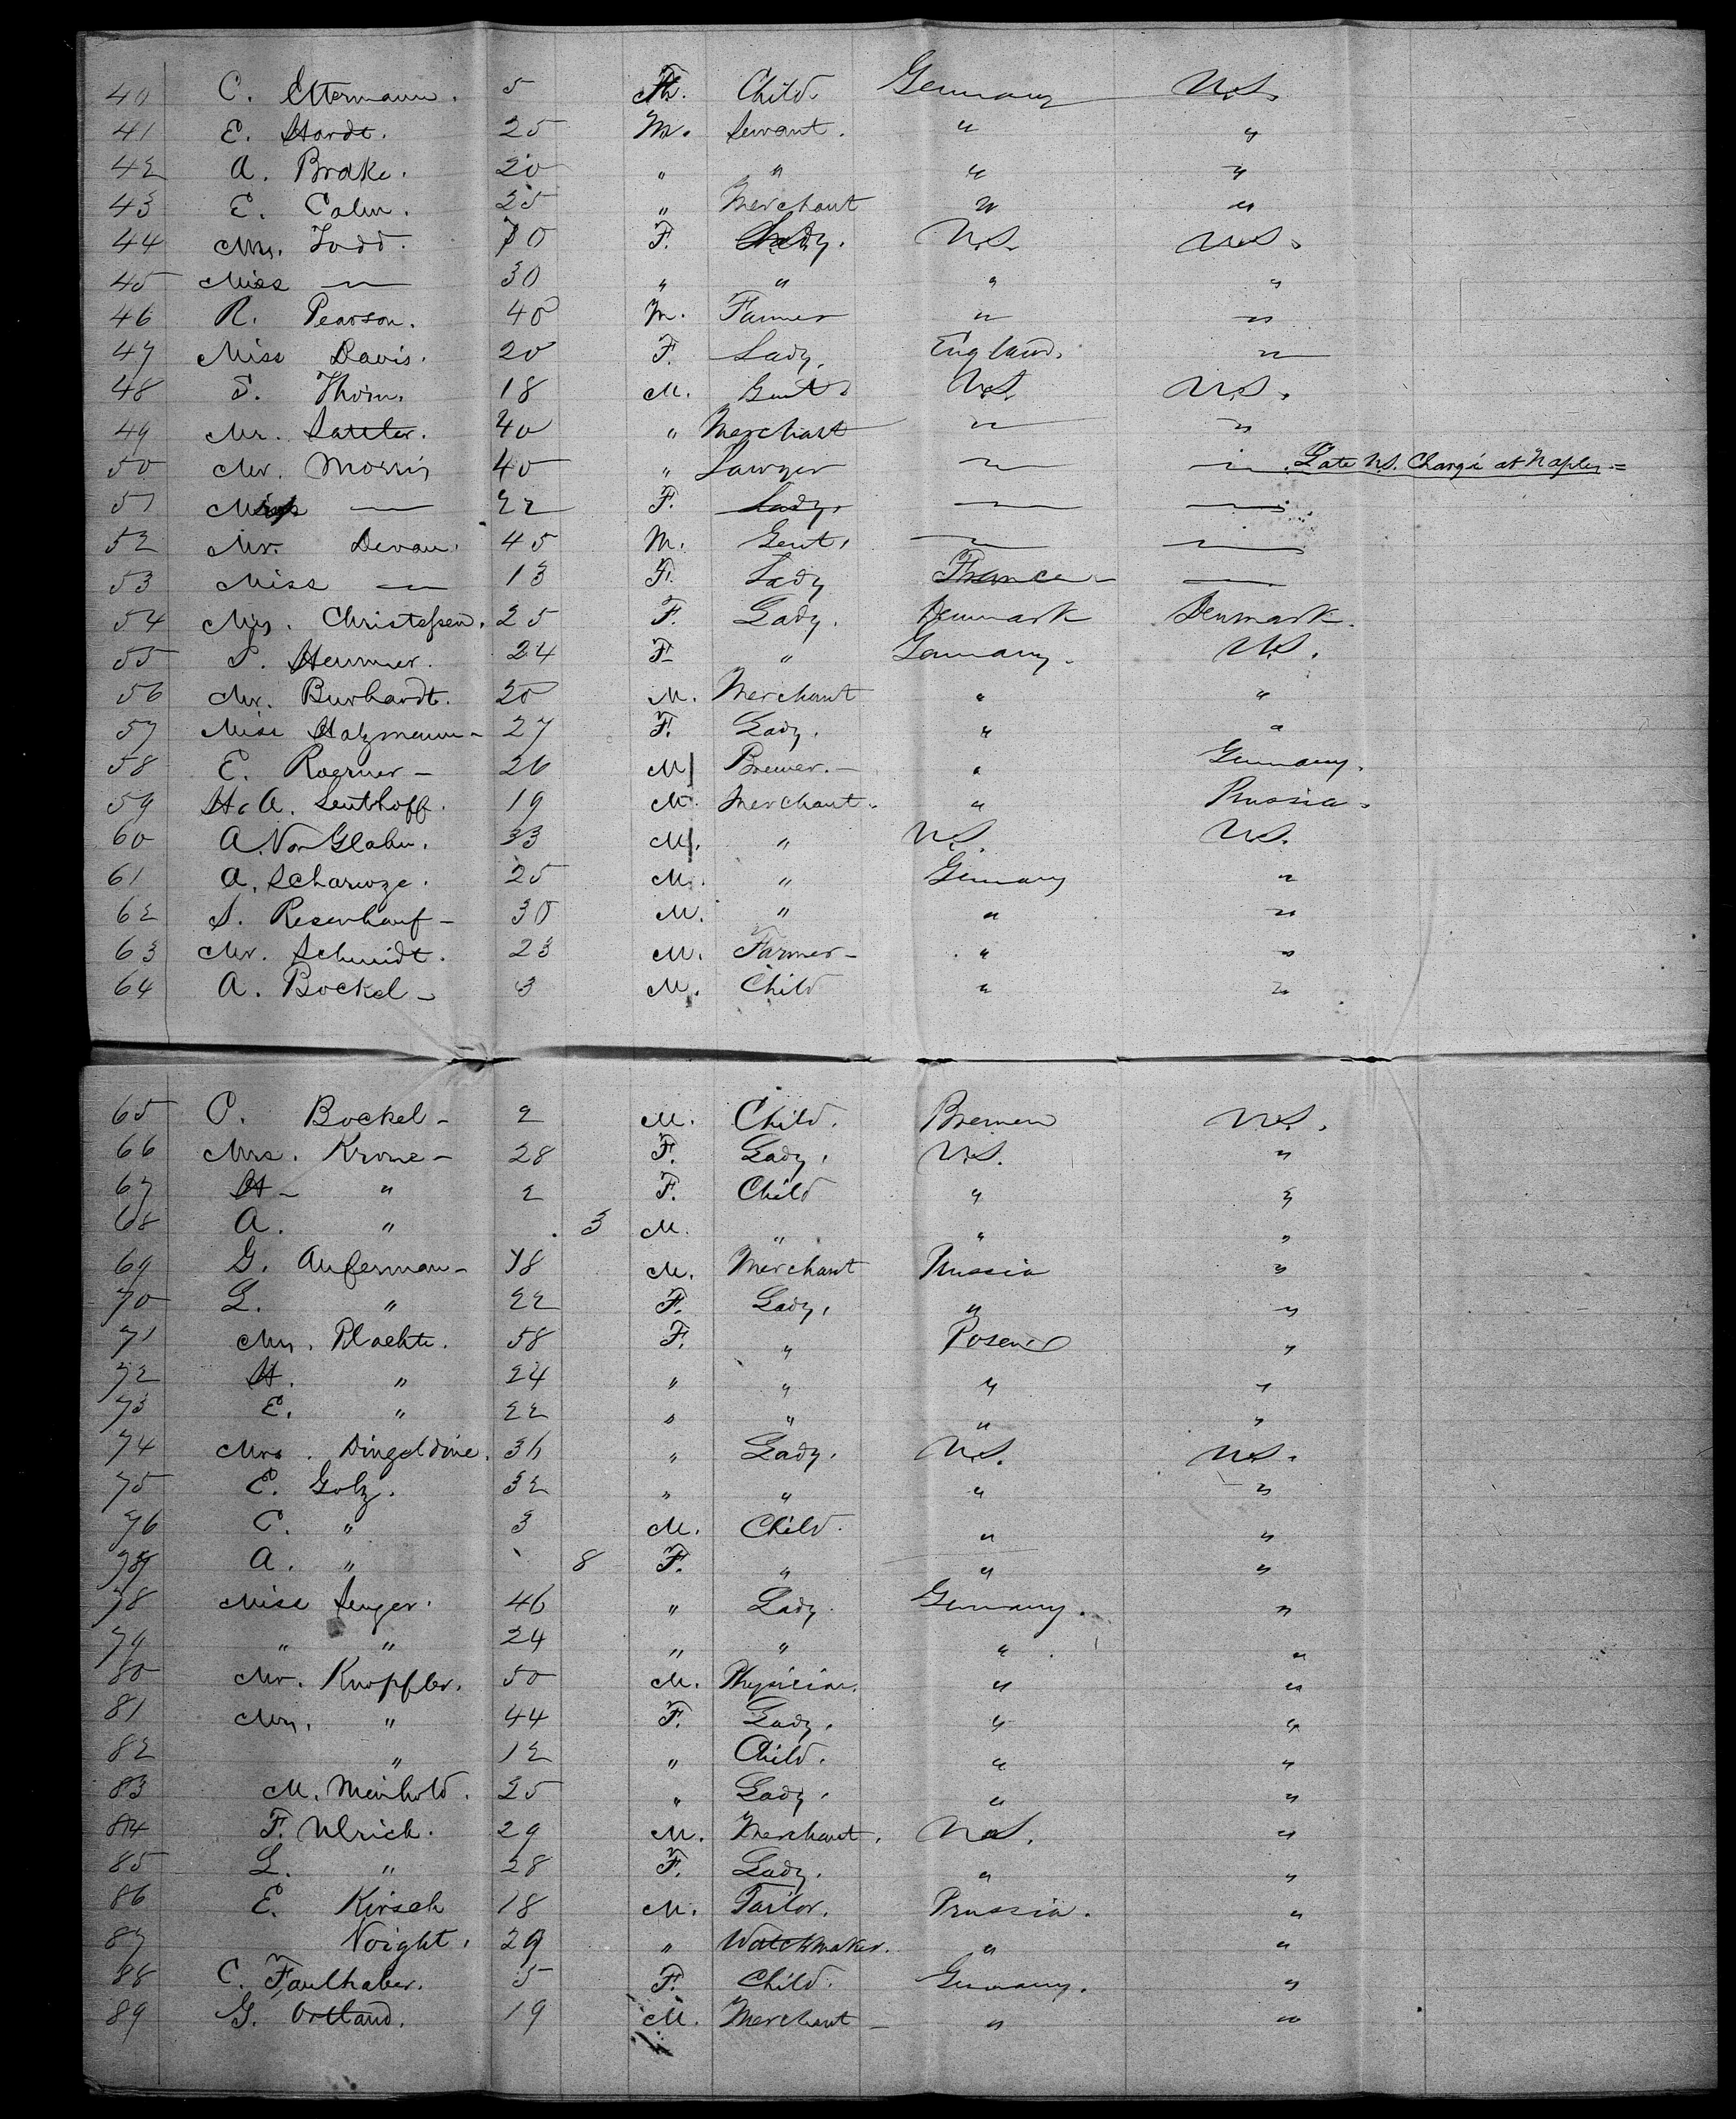 40 C. Ettermann. 5 M. Child. Germany U.S.
41 E. Hardt. 25 M. Servant. " "
42 A. Brake. 20 " " " "
43 E. Calm. 25 " Merchant " "
44 Mrs. Todd. 70 F. Lady. U.S. U.S.
45 Miss — 30 " " " "
46 R. Pearson. 40 M. Farmer " "
47 Miss Davis. 20 F. Lady. England. "
48 S. Thorn. 18 M. Gent. U.S. U.S.
49 Mr. Sattler. 40 " Merchant " "
50 Mr. Morris 40 " Lawyer — — Late U.S. Chargé at Naples =
51 — 22 F. Lady. — —
52 Mr. Devau. 45 M. Gent. — —
53 Miss — 13 F. Lady France — —
54 Mrs. Christeſsen. 25 F. Lady. Denmark Denmark.
55 S. Hemmer. 24 F. " Germany. U.S.
56 Mr. Burhardt. 20 M. Merchant " "
57 Miss Holzmann - 27 F. Lady. " "
58 E. Roerner - 26 M Brewer. - " Germany.
59 H. A. Senthoff. 19 M. Merchant. " Prussia.
60 A. Von Glahn. 33 M. " U.S. U.S.
61 A. Scharwze. 25 M. " Germany "
62 S. Resenhauf - 30 M. " " "
63 Mr. Schmidt. 23 M. Farmer - " "
64 A. Bockel - 3 M. Child " "
65 C. Bockel - 2 M. Child. Bremen U.S.
66 Mrs. Krone - 28 F. Lady. U.S. "
67 H - " 2 F. Child " "
68 A. " 3 M. " " "
69 G. Aufermau - 48 M. Merchant Prussia "
70 L. " 22 F. Lady. " "
71 Mrs. Plaehte. 58 F. " Posen "
72 H. " 24 " " " "
73 E. " 22 " " " "
74 Mrs. Dingeldine. 36 " Lady. U.S. U.S.
75 E. Golz. 32 " " " "
76 C. " 3 M. Child. " "
77 A. " 8 F. " " "
78 Miss Senger. 46 " Lady. Germany. "
79 " " 24 " " " "
80 Mr. Knopfler. 50 M. Physician. " "
81 Mrs. " 44 F. Lady. " "
82 " 12 " Child. " "
83 M. Meinhold. 25 " Lady. " "
84 F. Ulrich. 29 M. Merchant. U.S. "
85 L. " 28 F. Lady. " "
86 E. Kirsch 18 M. Tailor. Prussia. "
87 Voight. 29 " Watchmaker. " "
88 C. Faulhaber. 5 F. Child. Germany. "
89 G. Ortland. 19 M. Merchant - " "